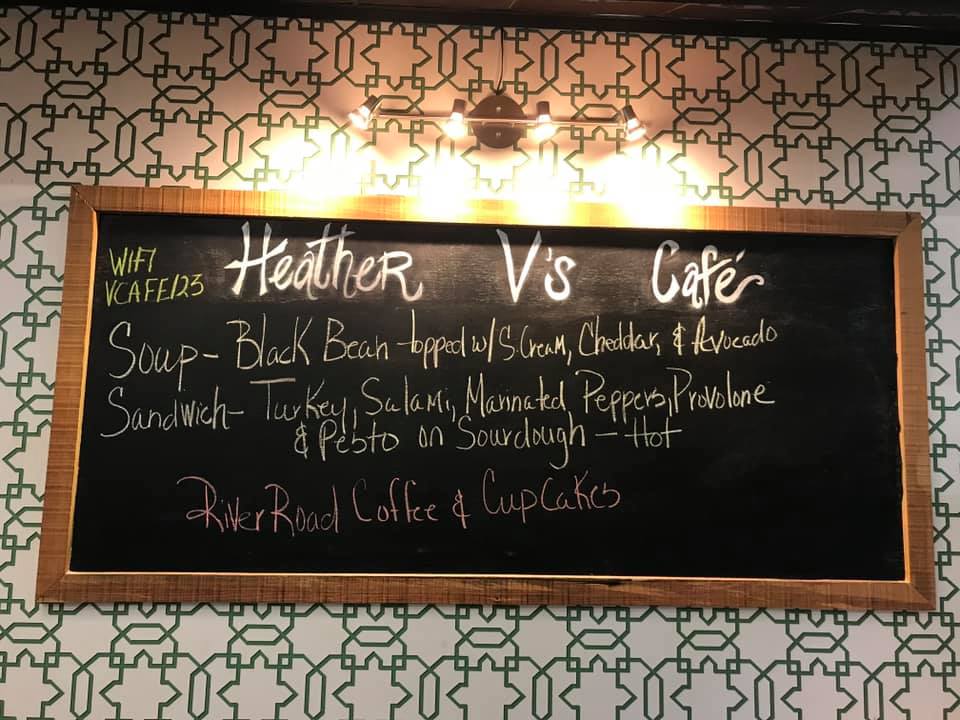 WIFI
VCAFE123
Heather V's Café
Soup- Black Bean topped w/ S.Cream, Cheddar, & Avocado
Sandwich- Turkey, Salami, Marinated Peppers, Provolone
& Pesto on Sourdough - Hot
River Road Coffee & Cupcakes